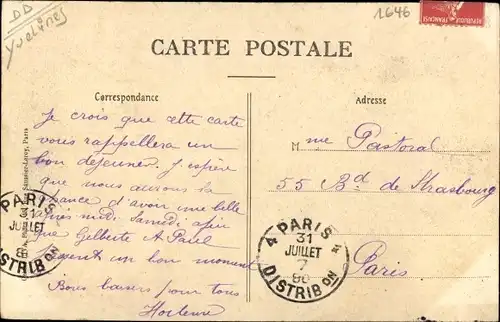 DD
Yvelines
1646
REPUBLIQUE FRANÇAISE
CARTE POSTALE
Correspondance
Adresse
Je crois que cette carte
vous rappellera un
bon dejeuner. J'espère
que nous aurons la
chance d'avoir une belle
après midi Samedi afin
que Gilberte & Paul
passent un bon moment
Bons baisers pour tous
Hortense
Mme Pastoral
55 Bd de Strasbourg
Paris
PARIS
31
JUILLET
DISTRIB ON
4 PARIS 4
31
JUILLET
7
DISTRIB ON
Paris